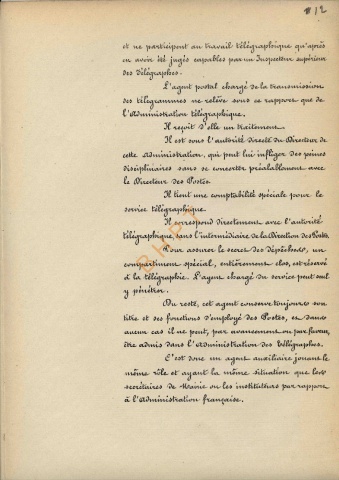 # 12
et ne participent au travail télégraphique qu'après
en avoir été jugés capables par un Inspecteur supérieur
des Télégraphes.
L'agent postal chargé de la transmission
des télégrammes ne relève sous ce rapport que de
l'Administration télégraphique.
Il reçoit d'elle un traitement.
Il est sous l'autorité directe du Directeur de
cette administration, qui peut lui infliger des peines
disciplinaires sans se concerter préalablement avec
le Directeur des Postes.
Il tient une comptabilité spéciale pour le
service télégraphique.
Il correspond directement avec l'autorité
télégraphique, sans l'intermédiaire de la Direction des Postes.
Pour assurer le secret des dépêches, un
compartiment spécial, entièrement clos, est réservé
à la télégraphie. L'agent chargé du service peut seul
y pénétrer.
Du reste, cet agent conserve toujours son
titre et ses fonctions d'employé des Postes, et dans
aucun cas il ne peut, par avancement ou par faveur,
être admis dans l'Administration des Télégraphes.
C'est donc un agent auxiliaire jouant le
même rôle et ayant la même situation que les
secrétaires de Mairie ou les instituteurs par rapport
à l'Administration française.